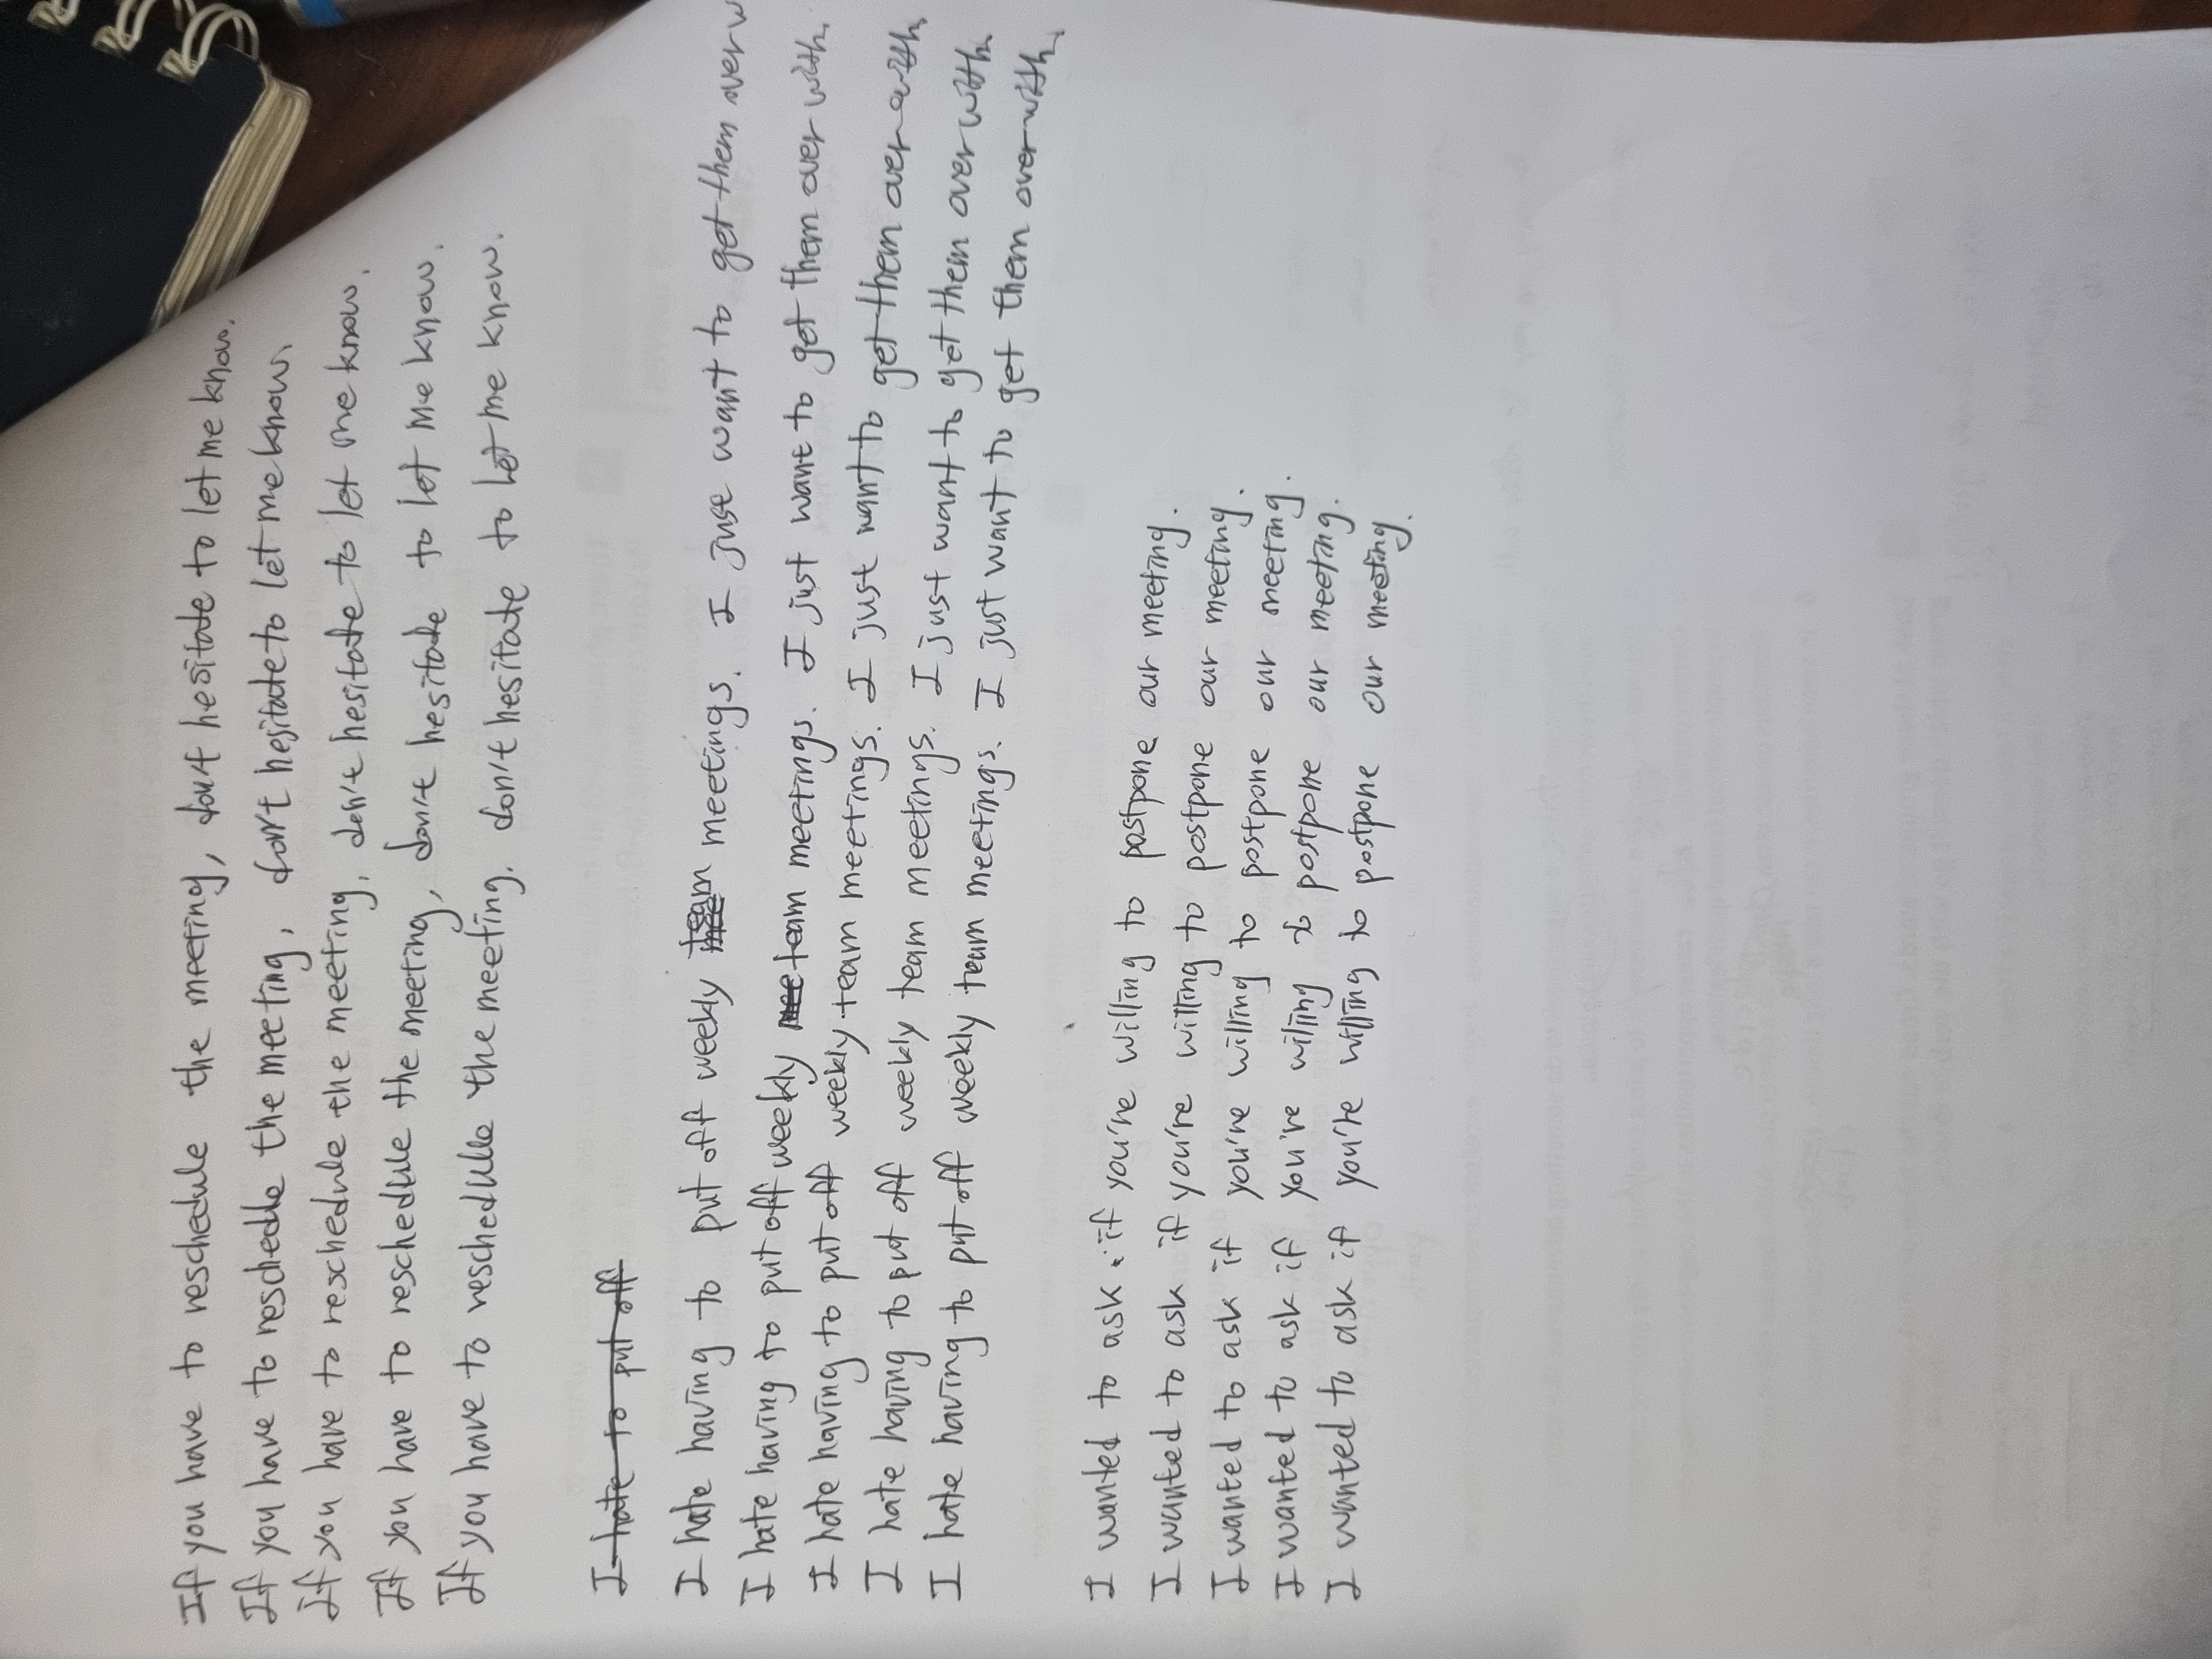 If you have to reschedule the meeting, don't hesitate to let me know.
If you have to reschedle the meeting, don't hesitate to let me know.
If you have to reschedule the meeting, don't hesitate to let me know.
If you have to reschedule the meeting, don't hesitate to let me know.
If you have to reschedule the meeting, don't hesitate to let me know.
I hate to put off
I hate having to put off weekly team meetings. I just want to get them over w
I hate having to put off weekly team meetings. I just want to get them over with.
I hate having to put off weekly team meetings. I just want to get them over with.
I hate having to put off weekly team meetings. I just want to get them over with.
I hate having to put off weekly team meetings. I just want to get them over with.
I wanted to ask if you're willing to postpone our meeting.
I wanted to ask if you're willing to postpone our meeting.
I wanted to ask if you're willing to postpone our meeting.
I wanted to ask if you're willing to postpone our meeting.
I wanted to ask if you're willing to postpone our meeting.